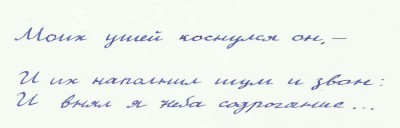 Моих ушей коснулся он,—
И их наполнил шум и звон:
И внял я неба содрогание...